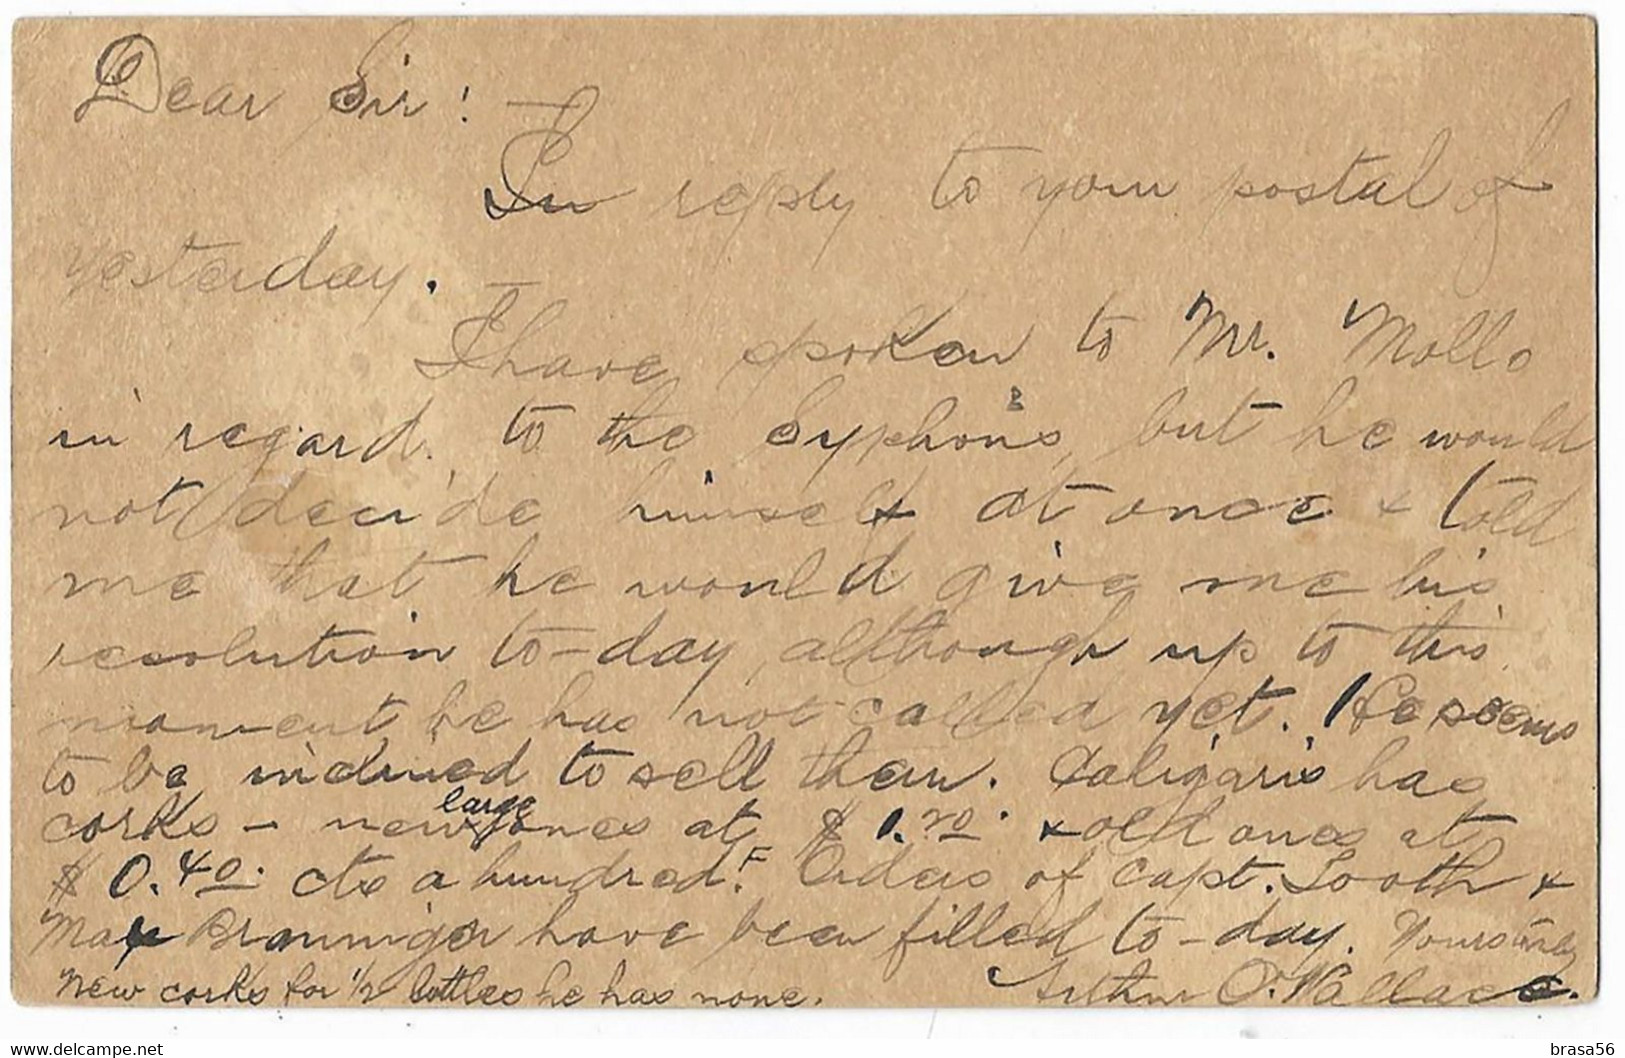 Dear Sir!
In reply to your postal of
yesterday.
I have spoken to Mr. Mollo
in regard to the Syphons, but he would
not decide himself at once & told
me that he would give me his
resolution to-day, although up to this
moment he has not called yet. He seems
to be inclined to sell them. Caligaris has
corks - new large ones at $1.20. & old ones at
$0.40. cts a hundred. Orders of Capt. Tooth &
Max Brauniger have been filled to-day. Yours truly
New corks for 1/2 bottles he has none. Arthur O. Wallace.
brasa56